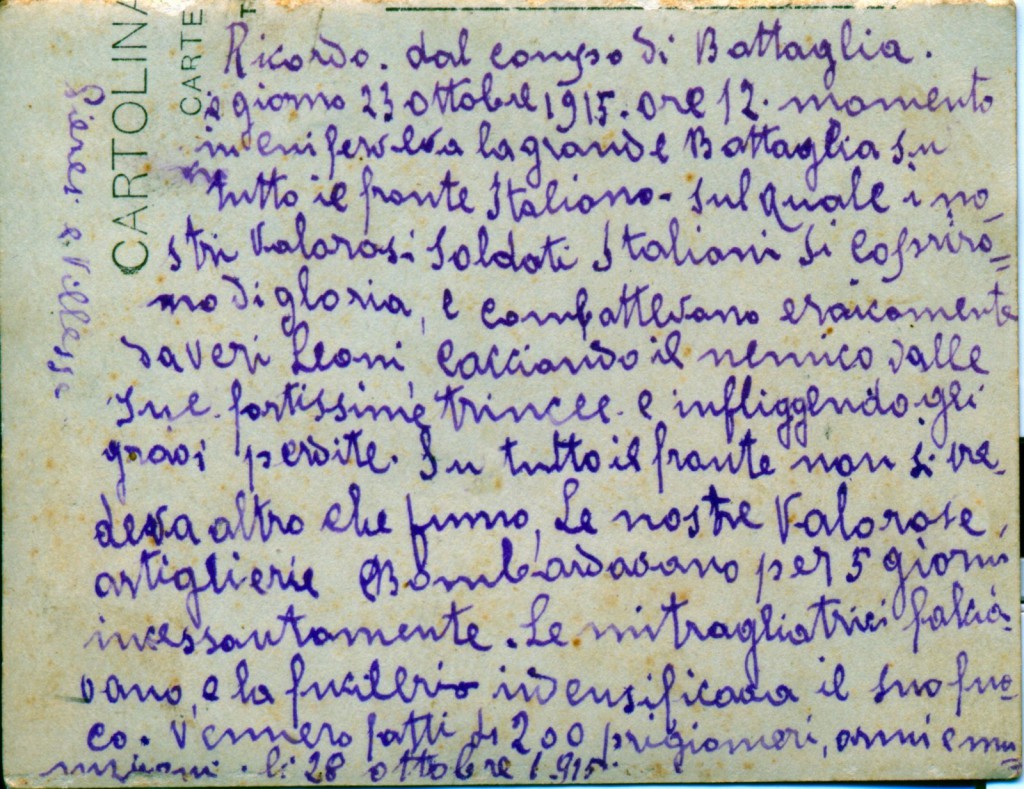 CARTOLINA
CARTE
Ricordo. dal campo di Battaglia.
giorno 23 ottobre 1915. ore 12. momento
in cui ferveva la grande Battaglia su
tutto il fronte Italiano. Sul quale i no
stri Valorosi Soldati Italiani Si Copriro=
no di gloria, e combattevano eroicamente
da veri Leoni, Cacciando il nemico dalle
Sue fortissime trincee e infliggendogli
gravi perdite. Su tutto il fronte non si ve
deva altro che fumo, Le nostre Valorose
artiglierie Bombardavano per 5 giorni
incessantemente. Le mitragliatrici falcia
vano, e la fucileria indensificava il suo fuo=
co. Vennero fatti di 200 prigionieri, armi e mu=
nizioni. li 28 ottobre 1915.
Villesse